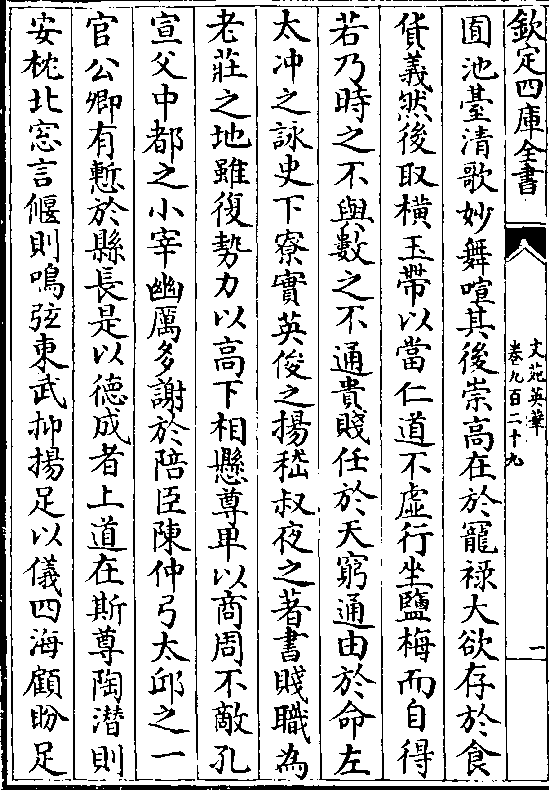 欽定四庫全書
文苑英華
卷九百二十九
一
囿池臺清歌妙舞喧其後崇高在於寵祿大欲存於食
貨義然後取橫玉帶以當仁道不虛行坐鹽梅而自得
若乃時之不與數之不通貴賤任於天窮通由於命左
太冲之詠史下寮實英俊之揚嵇叔夜之著書賤職為
老莊之地雖復勢力以高下相懸尊卑以商周不敵孔
宣父中都之小宰幽厲多謝於陪臣陳仲弓太邱之一
官公卿有慙於縣長是以德成者上道在斯尊陶潛則
安枕北窓言偃則鳴弦東武抑揚足以儀四海顧盼足